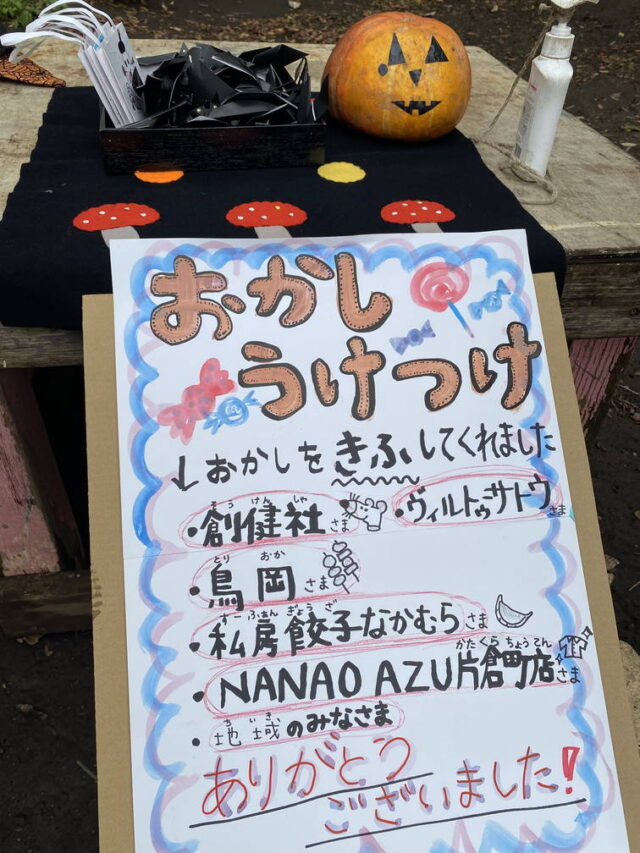 おかし
うけつけ
↓おかしをきふしてくれました
・創健社さま ・ヴィルトゥサトウさま
そう けん しゃ
・鳥岡さま
とり おか
・私房餃子なかむらさま
さーふぁんぎょうざ
・NANAO AZU片倉町店さま
かたくらちょうてん
・地域のみなさま
ちいき
ありがとう
ございました!